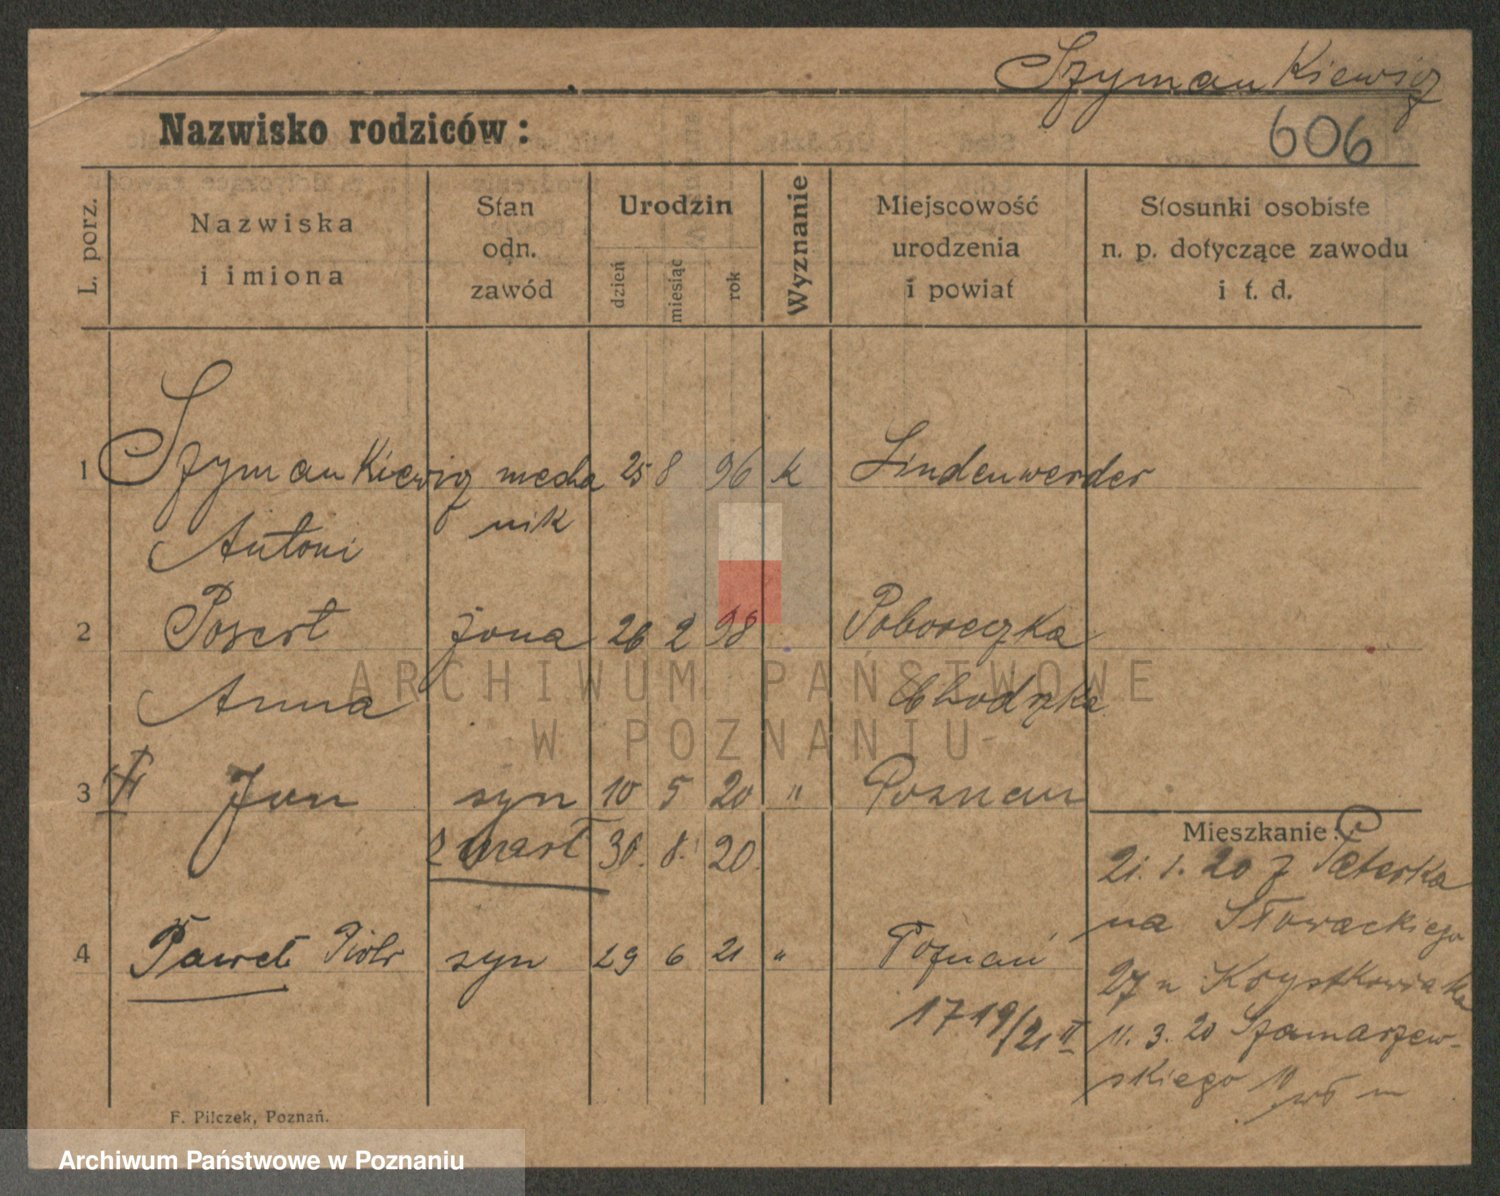 Szymankiewicz
Nazwisko rodziców:
606
L. porz.
Nazwiska
i imiona
Stan
odn.
zawód
Urodzin
dzień
miesiąc
rok
Wyznanie
Miejscowość
urodzenia
i powiat
Stosunki osobiste
n. p. dotyczące zawodu
i t. d.
1 Szymankiewicz mecha 25 8 96 k Lindenwerder
Antoni nik
2 Posert żona 26 2 98 Poboreczka
Anna Chodzka
3 Jan syn 10 5 20 " Poznań
zmarł 30. 8. 20.
Mieszkanie:
21. 1. 20 z Peterka
na Słowackiego
27 u Krystkowiaka
11. 3. 20 Szamarzew-
skiego 10
4 Paweł Piotr syn 29 6 21 " Poznań
1719/21 II
F. Pilczek, Poznań.
ARCHIWUM PAŃSTWOWE
W POZNANIU
Archiwum Państwowe w Poznaniu